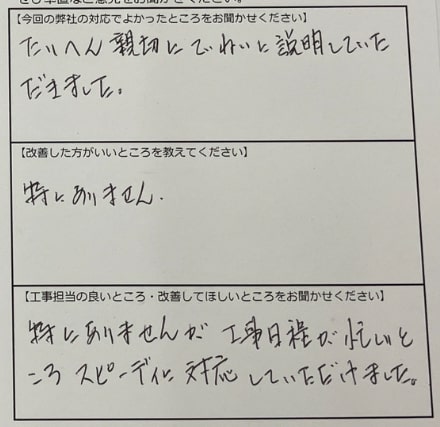 ぜひ率直なご意見をお聞かせください。
【今回の弊社の対応でよかったところをお聞かせください】
たいへん親切にていねいに説明していた
だきました。
【改善した方がいいところを教えてください】
特にありません.
【工事担当の良いところ・改善してほしいところをお聞かせください】
特にありませんが 工事日程が忙しいと
ころ スピーディに 対応していただけました。